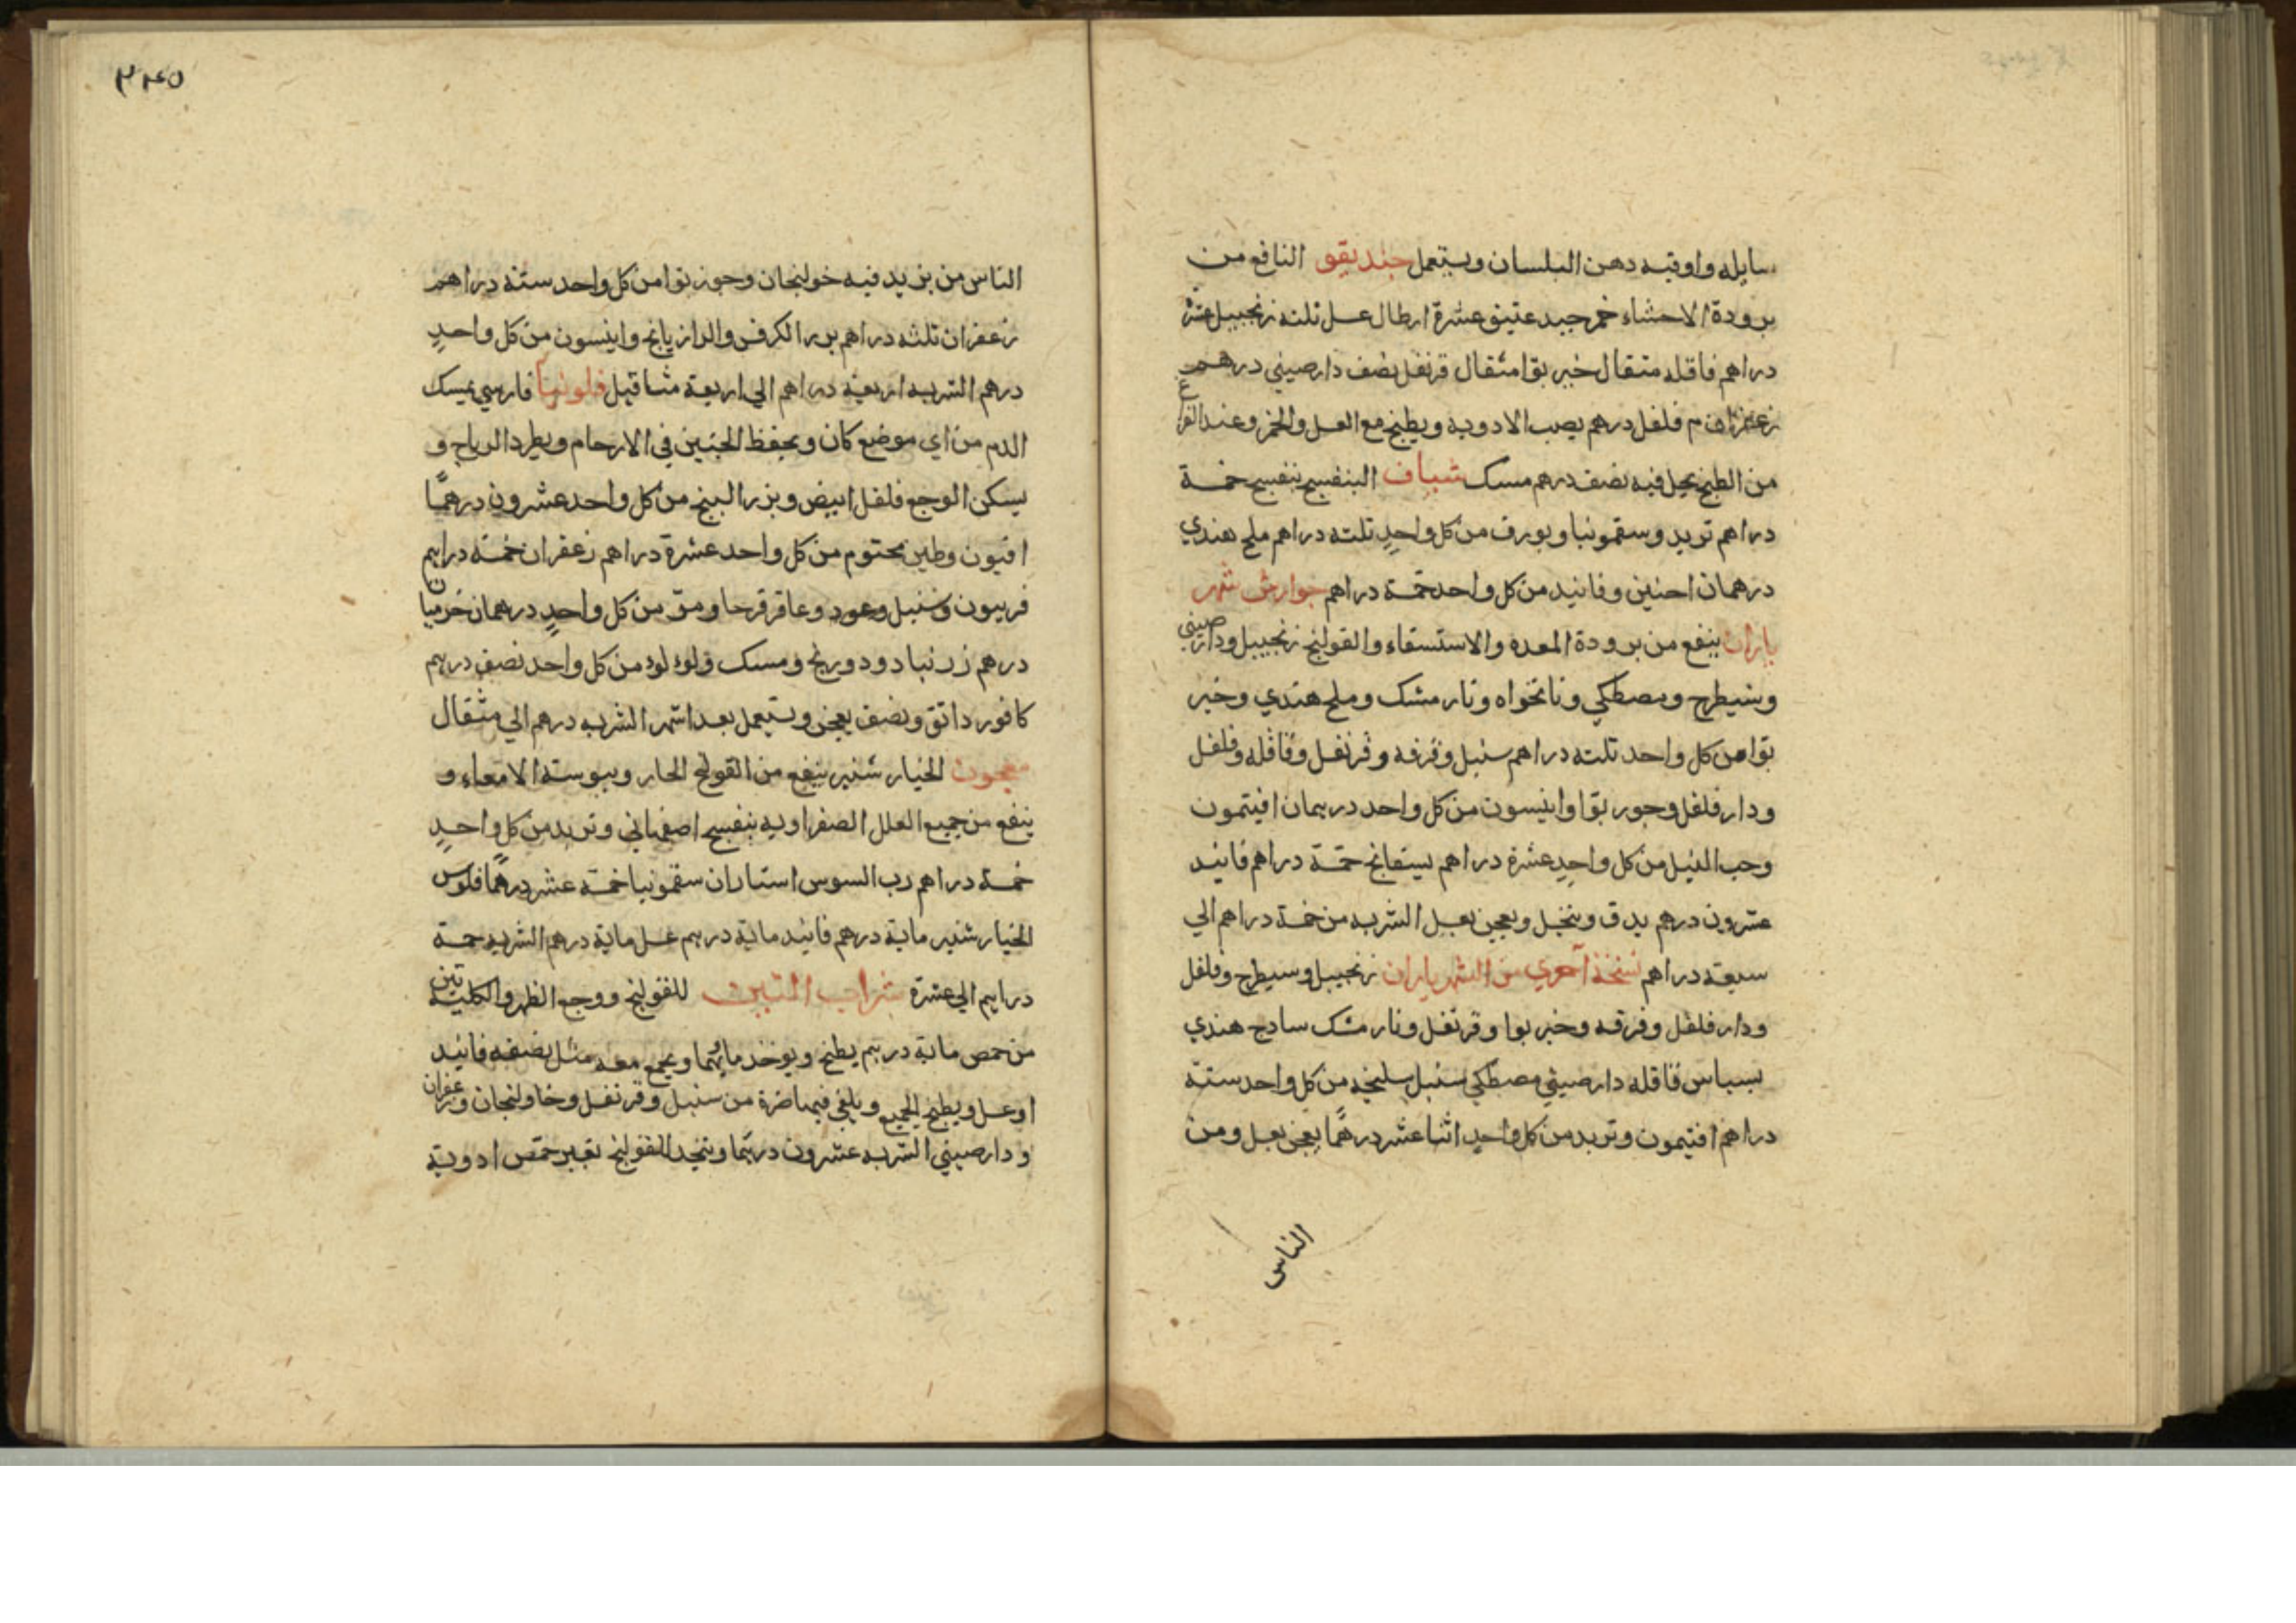 سايله واوقيه دهن البلسان ويستعمل جنديقو النافع من
برودة الاحشاء خمر جيد عتيق عشرة ارطال عسل ثلثه زنجبيل عشرة
دراهم قاقله مثقال خير بوا مثقال قرنفل نصف دارصيني درهم
زعفران م فلفل درهم يصب الادويه ويطبخ مع العسل والخمر وعند الفراغ
من الطبخ يحل فيه نصف درهم مسك شياف البنفسج بنفسج خمسة
دراهم تربد وسقمونيا وبورق من كل واحدٍ ثلثه دراهم ملح هندي
درهمان وفانيد من كل واحد خمسة دراهم جوارش شهر
ياران ينفع من برودة المعده والاستسقاء والقولنج زنجبيل ودارصيني
وشيطرج ومصطكي ونانخواه ونارمشك وملح هندي وخير
بوا من كل واحد ثلثه دراهم سنبل وقرفه وقرنفل وقاقله وفلفل
ودارفلفل وجوز بوا وانيسون من كل واحد درهمان افيتمون
وحب النيل من كل واحدٍ عشرة دراهم بسفايج خمسة دراهم فانيد
عشرون درهم يدق وينخل ويعجن بعسل الشربه من خمسة دراهم الي
سبعة دراهم نسخة اخري من الشهرياران زنجبيل وسيطرج وفلفل
ودارفلفل وقرفه وخير بوا وقرنفل ونارمشك سادج هندي
بسباس قاقله دارصيني مصطكي سنبل سليخه من كل واحد ستة
دراهم افتيمون وتربد من كل واحدٍ اثنا عشر درهمًا يعجن بعسل ومن
الناس
٣٤٥
الناس من يزيد فيه خولنجان وجوز بوا من كل واحد ستة دراهم
زعفران ثلثه دراهم بزر الكرفس والرازيانج وانيسون من كل واحدٍ
درهم الشربه اربعة دراهم الي اربعة مثاقيل فلونيا فارسي يمسك
الدم من اي موضع كان ويحفظ الجنين في الارحام ويطرد الرياح و
يسكن الوجع فلفل ابيض وبزر البنج من كل واحد عشرون درهمًا
افيون وطين مختوم من كل واحد عشرة دراهم زعفران خمسة دراهم
فربيون وسنبل وعود وعاقرقرحا ومرّ من كل واحدٍ درهمان
درهم زرنباد ودورنج ومسك ولولو من كل واحد نصف درهم
كافور دانق ونصف يعجن ويستعمل بعد اشهر الشربه درهم الي مثقال
معجون الخيار شنبر ينفع من القولنج الحار ويبوسة الامعاء و
ينفع من جميع العلل الصفراويه بنفسج اصفهاني وتربد من كل واحدٍ
خمسة دراهم رب السوس استاران سقمونيا خمسة عشر درهمًا فلوس
الخيار شنبر ماية درهم فانيد ماية درهم عسل ماية درهم الشربه خمسة
دراهم الي عشرة شراب التين للقولنج ووجع الظهر والكلية تين
من حمص ماية درهم يطبخ ويوخذ ماؤهما ويجمع معه مثل نصفه فانيد
او عسل ويطبخ الجميع ويلقي فيها صرة من سنبل وقرنفل وخاولنجان وزعفران
ودارصيني الشربه عشرون درهمًا ويتخذ للقولنج بغير حمّص ادوية